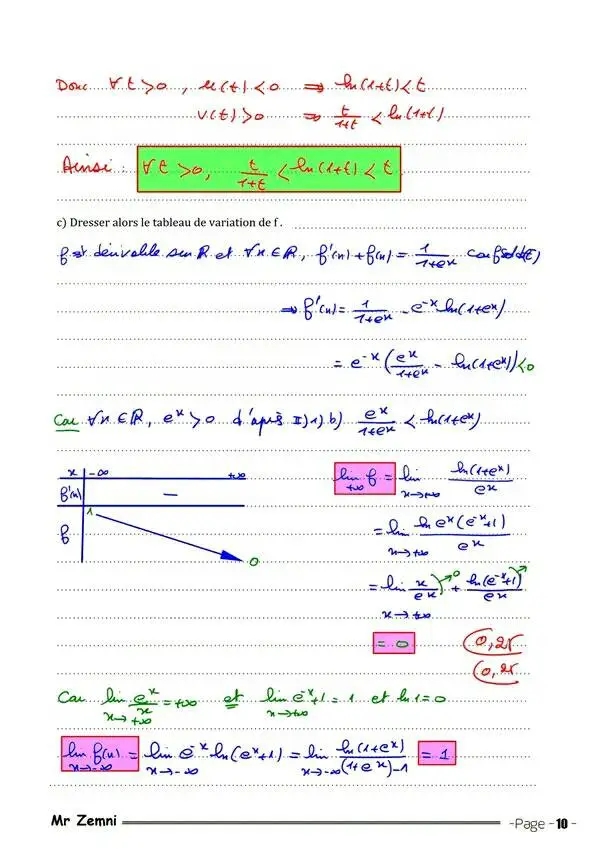 Donc ∀ t > 0 , u(t) < 0 ⇒ ln(1+t) < t
v(t) > 0 ⇒ t/(1+t) < ln(1+t)
Ainsi : ∀ t > 0, t/(1+t) < ln(1+t) < t
c) Dresser alors le tableau de variation de f .
f est dérivable sur ℝ et ∀x ∈ ℝ, f'(x) + f(x) = 1/(1+e^x) car f sol de (E)
⇒ f'(x) = 1/(1+e^x) - e^-x ln(1+e^x)
= e^-x (e^x/(1+e^x) - ln(1+e^x)) < 0
Car ∀x ∈ ℝ, e^x > 0 d'après II)1) b) e^x/(1+e^x) < ln(1+e^x)
x -∞ +∞
f'(x) −
f 1 0
lim f +∞ = lim x→+∞ ln(1+e^x)/e^x
= lim x→+∞ ln e^x(e^-x+1)/e^x
= lim x→+∞ x/e^x → 0 + ln(e^-x+1)/e^x
= 0 0,25
0,25
Car lim x→+∞ e^x/x = +∞ et lim x→+∞ e^-x+1 = 1 et ln 1 = 0
lim x→-∞ f(x) = lim x→-∞ e^-x ln(e^x+1) = lim x→-∞ ln(1+e^x)/((1+e^x)-1) = 1
Mr Zemni -Page - 10 -